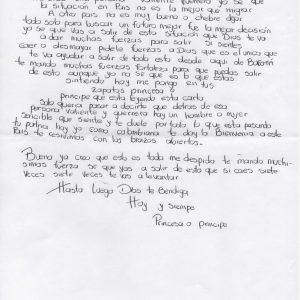 valiente guerrera yo se que
la situación en País no es la mejor que migrar
A otro país no es muy bueno o chebre dejar
todo solo para buscar un futuro mejor fue la mejor decisión
yo se que vas a salir de esta situación que Dios te va
a dar muchas fuerzas para salir si sientes
caer o desmayar pidele fuerzas a Dios que es el unico que
te va ayudar a salir de todo esto desde aqui de
te mando muchisimas fuerzas fortaleza para que puedas salir
de esto aunque yo no se que es lo que estas
sintiendo hoy me pongo en tus
zapatos princesa o
principe que esta leyendo esta carta
Solo quería pasar a decirte que detras de esa
persona valiente y guerrera hay un hombre o mujer
sencible que siente y te duele por todo lo que esta pasando
tu patria hoy yo como colombiana te doy la Bienvenida a este
País te resivimos con los brazos abiertos.
Bueno yo creo que esto es todo me despido te mando muchi-
simas fuerza se que vas a salir de esto que si caes siete
veces siete veces te vas a levantar
Hasta luego Dios te Bendiga
Hoy y siempre
Princesa o principe